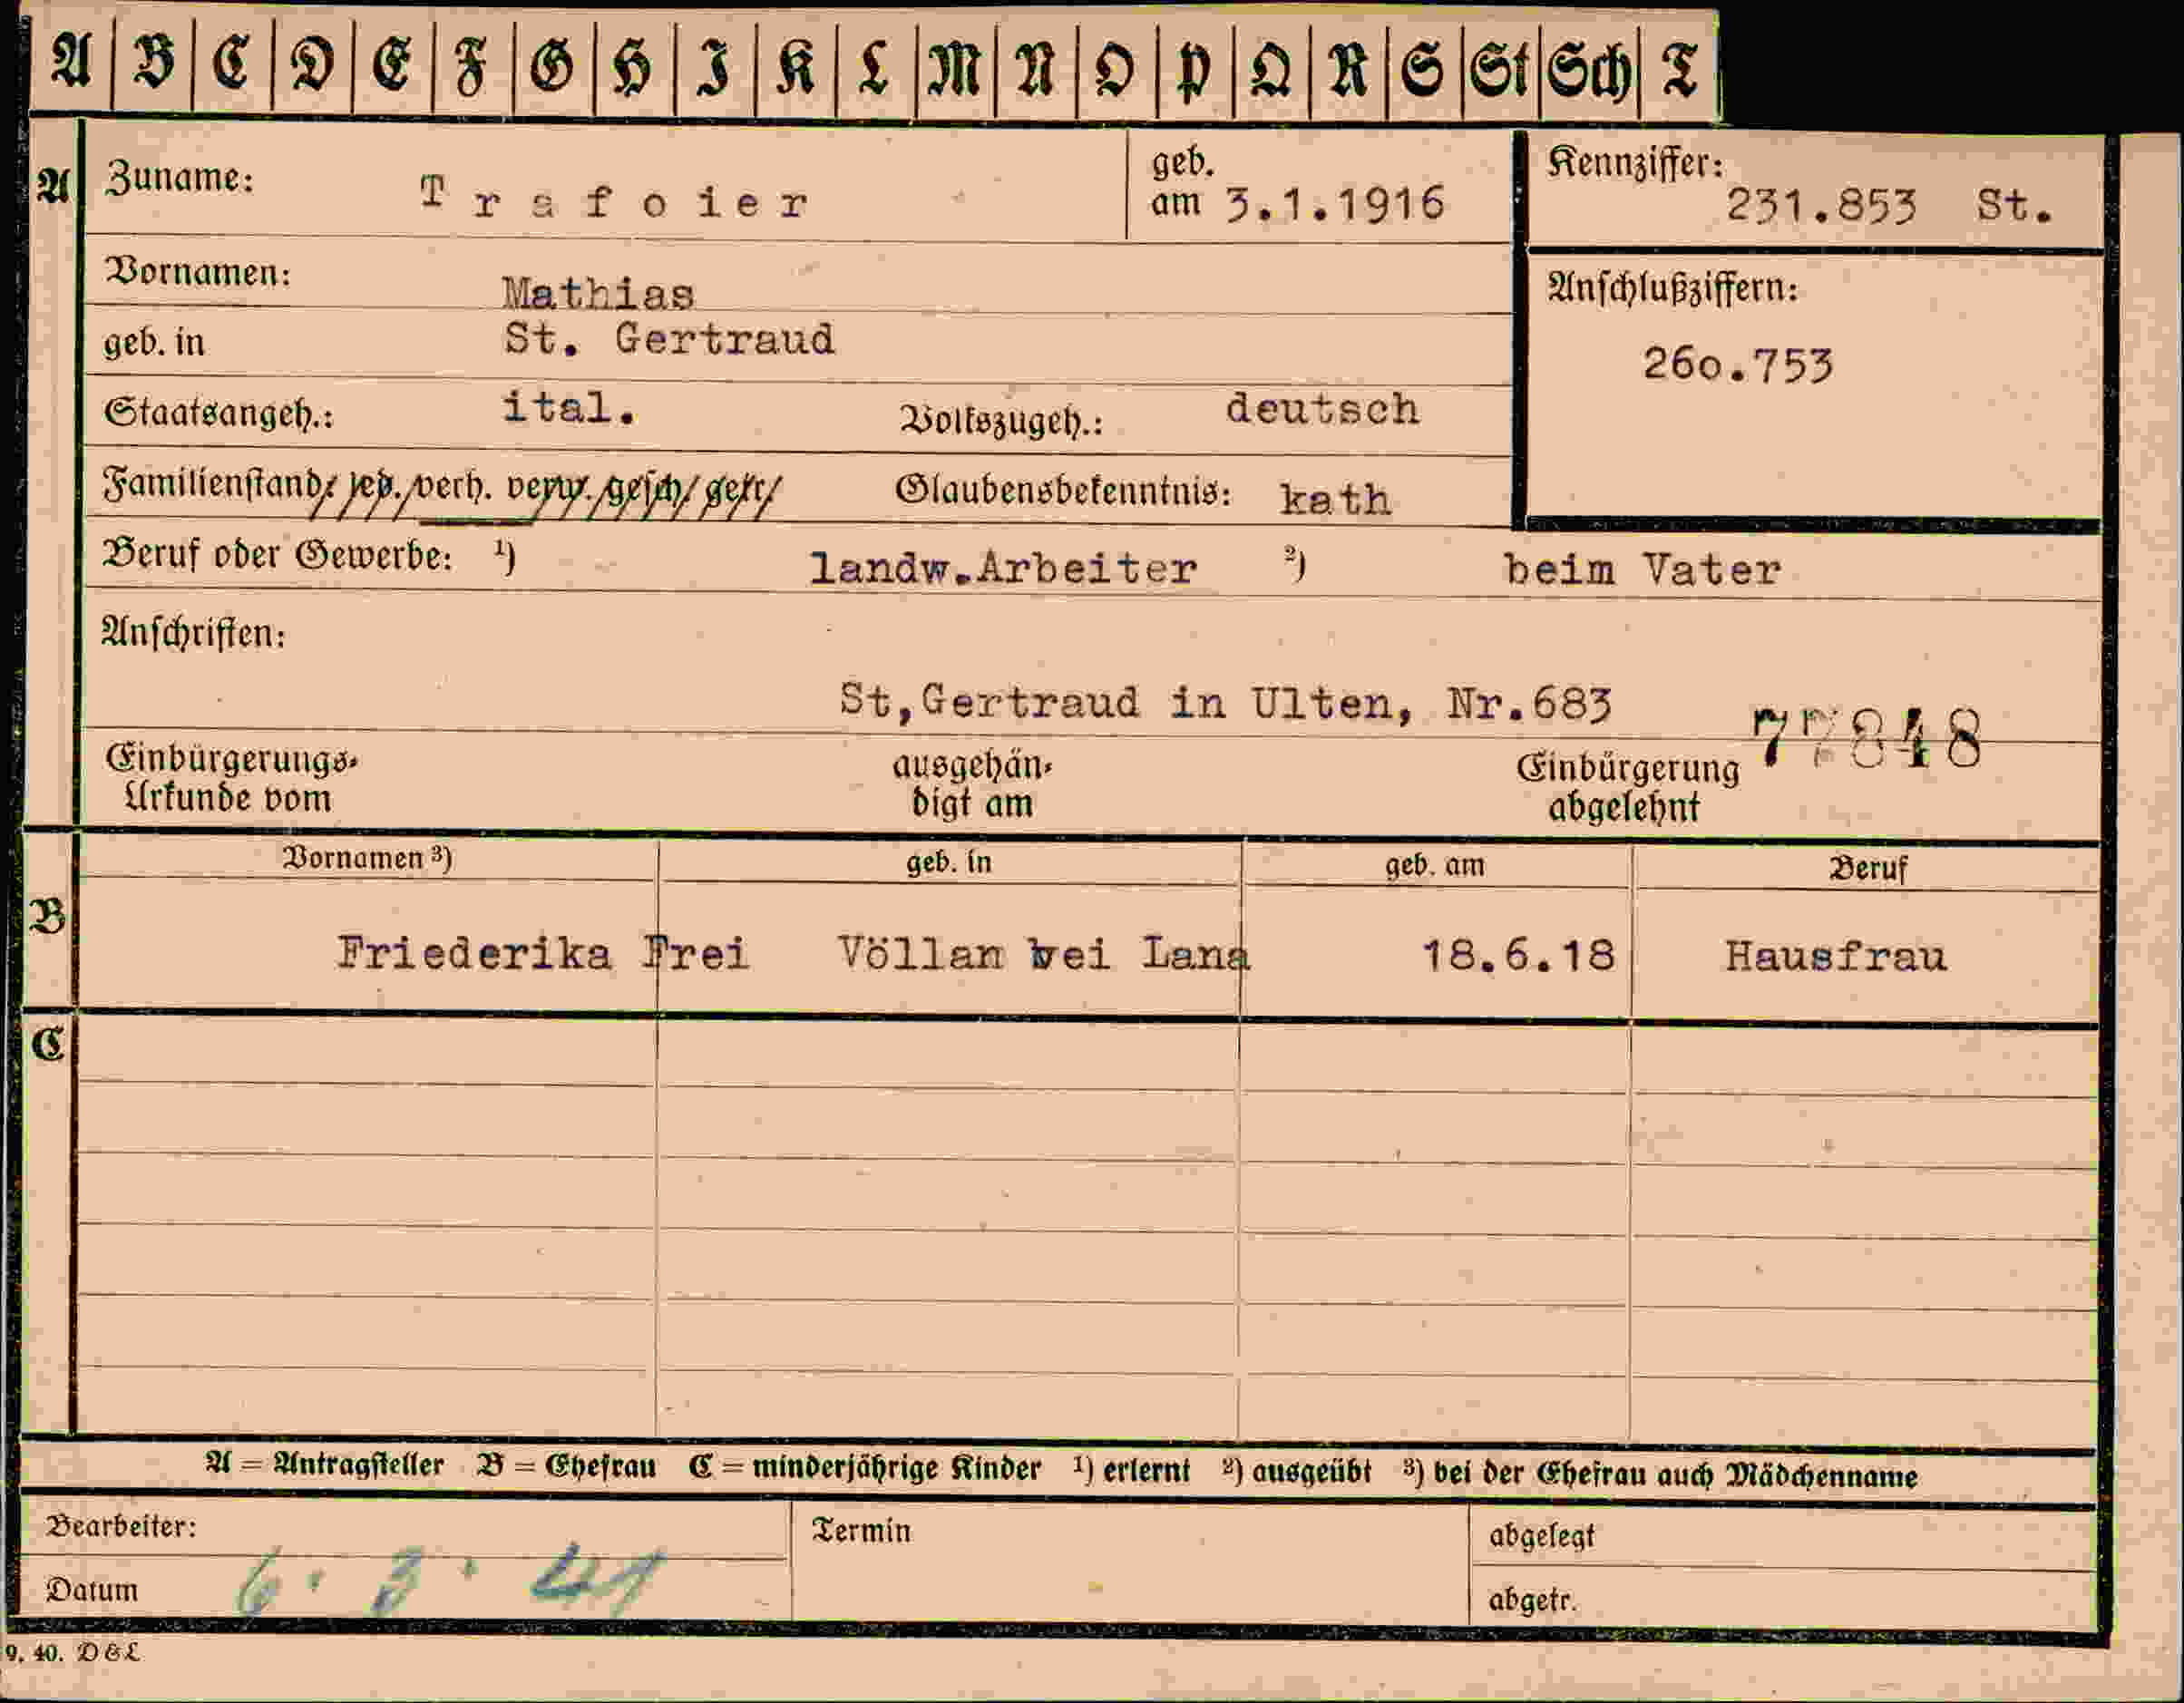 A B C D E F G H I K L M N O P Q R S St Sch T
A Zuname: Trafoier geb. am 3.1.1916 Kennziffer: 231.853 St.
Vornamen: Mathias
Anschlußziffern:
geb. in St. Gertraud
260.753
Staatsangeh.: ital. Volkszugeh.: deutsch
Familienstand: led. verh. verw. gesch. getr. Glaubensbekenntnis: kath
Beruf oder Gewerbe: ¹) landw.Arbeiter ²) beim Vater
Anschriften:
St,Gertraud in Ulten, Nr.683
77848
Einbürgerungs- ausgehän- Einbürgerung
Urkunde vom digt am abgelehnt
Vornamen ³) geb. in geb. am Beruf
B
Friederika Frei Völlan bei Lana 18.6.18 Hausfrau
C
A = Antragsteller B = Ehefrau C = minderjährige Kinder ¹) erlernt ²) ausgeübt ³) bei der Ehefrau auch Mädchenname
Bearbeiter: Termin abgelegt
Datum 6. 3. 41 abgetr.
9. 40. D & L